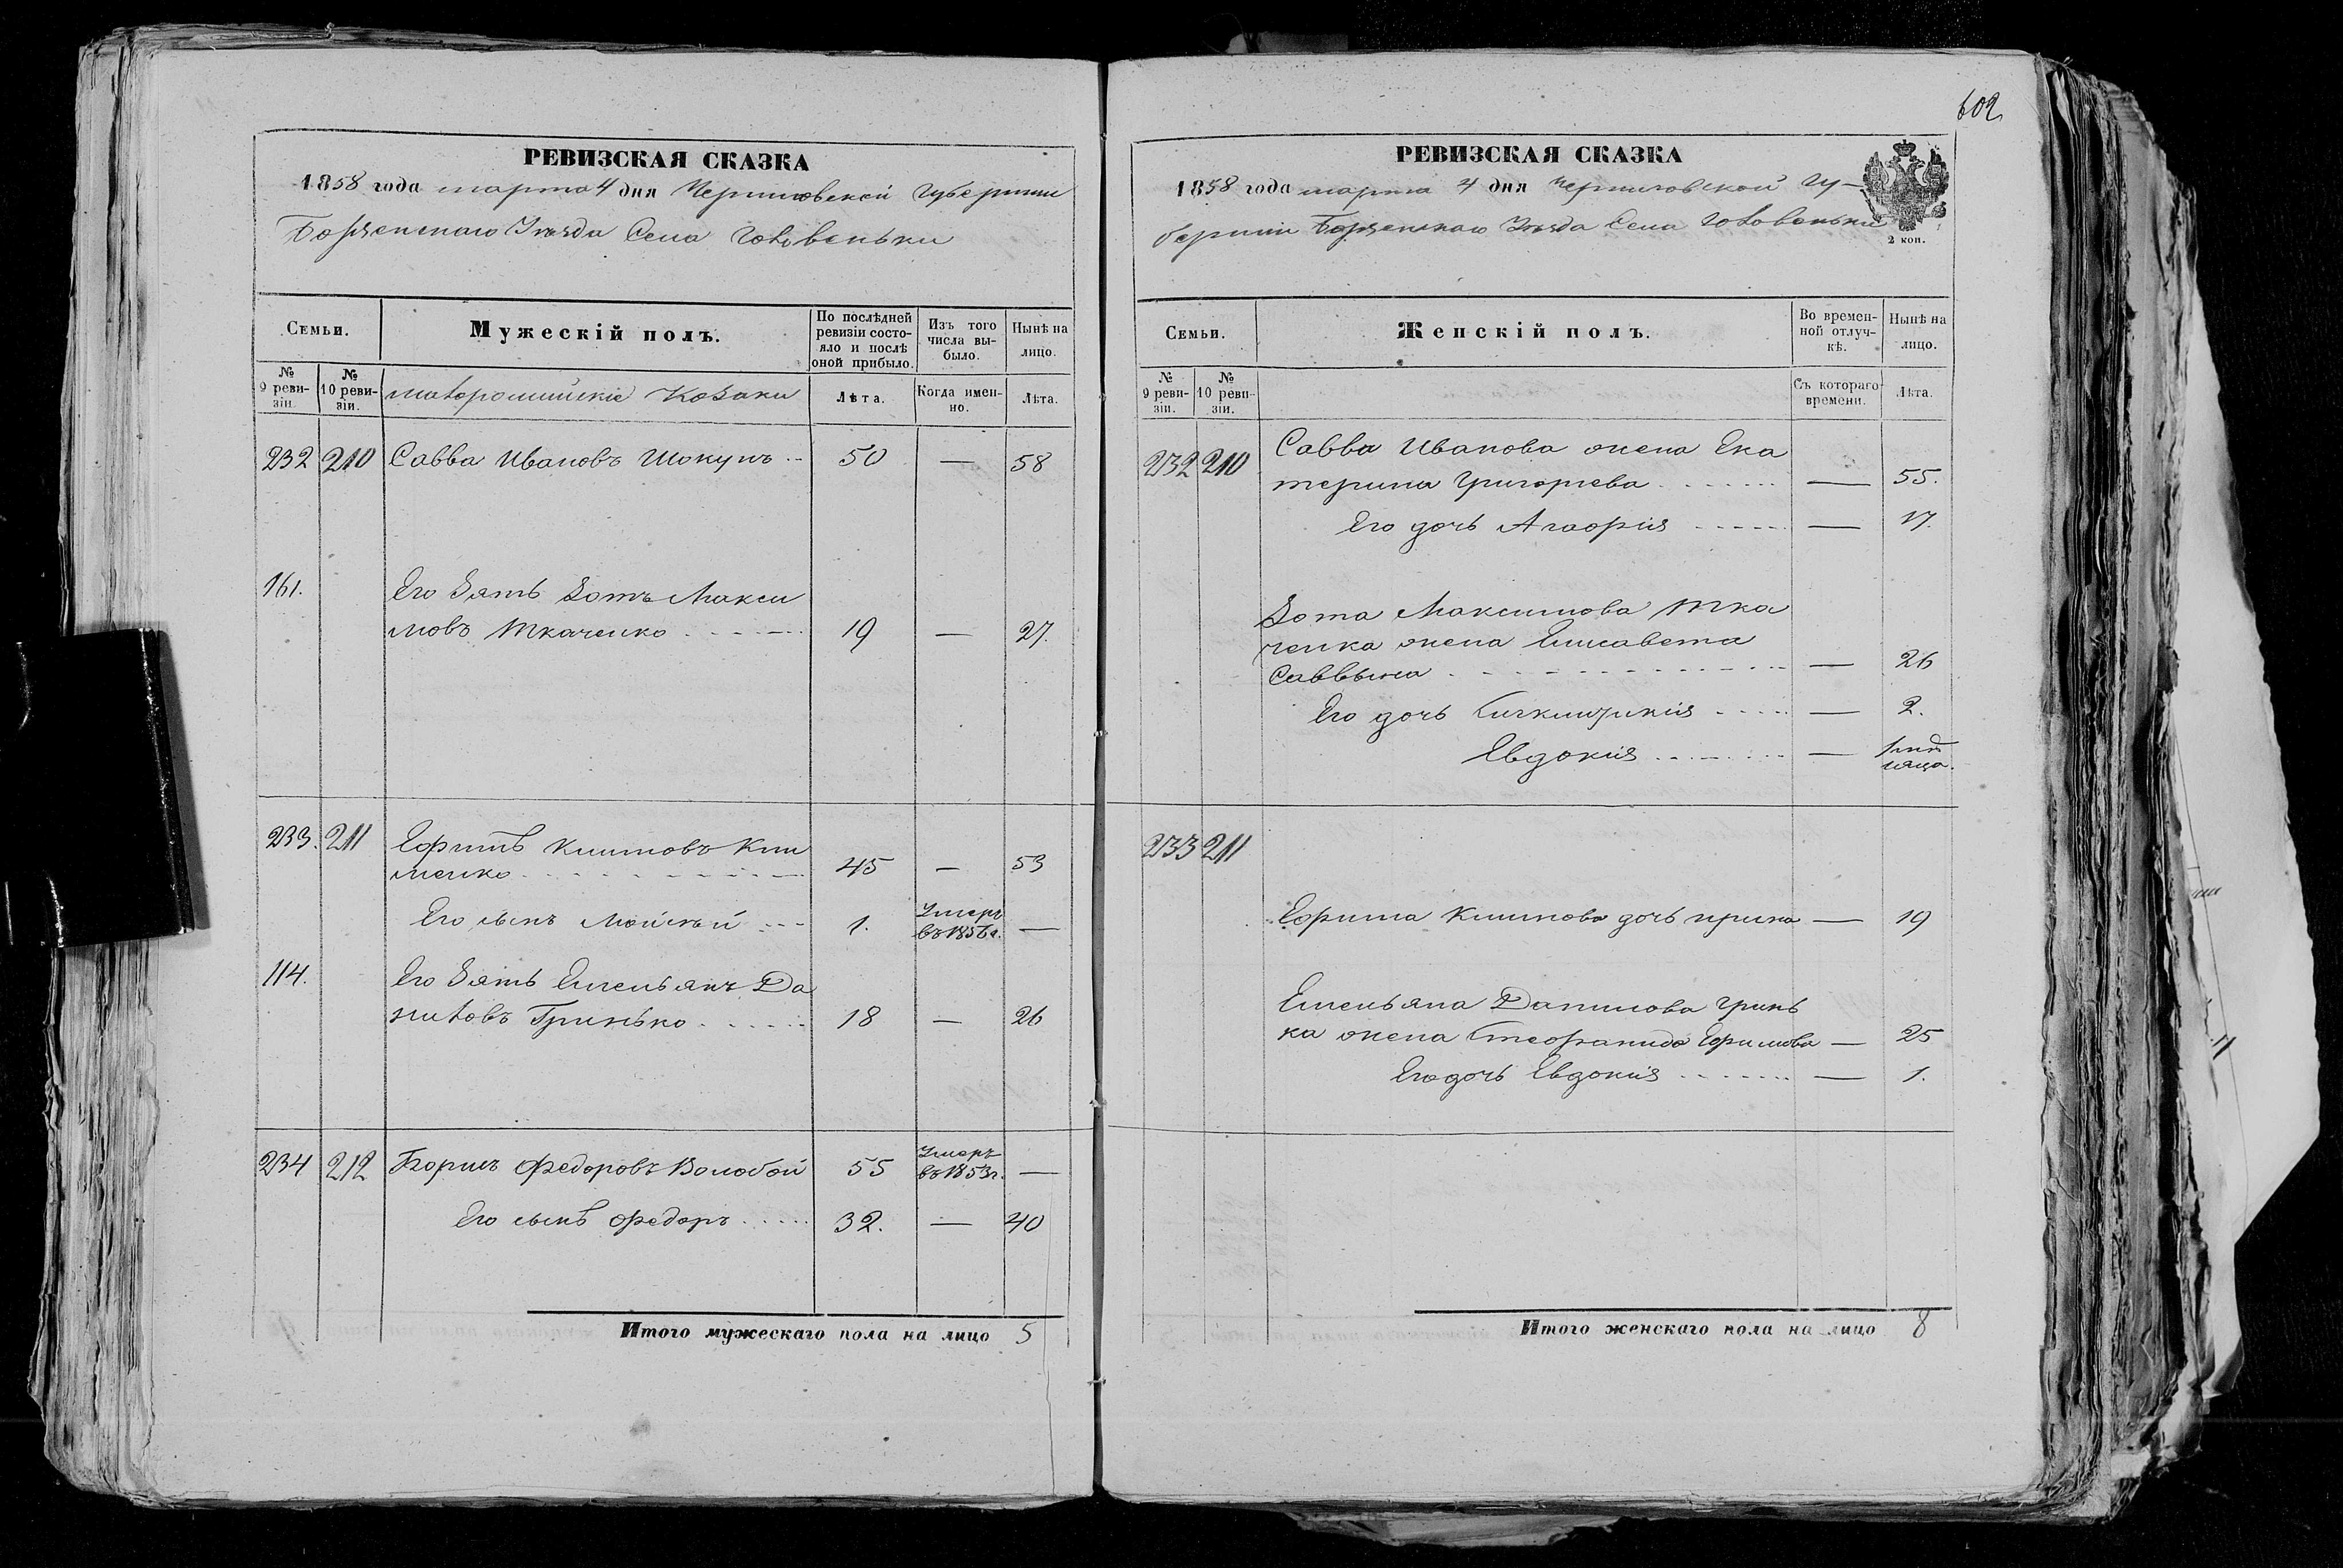 РЕВИЗСКАЯ СКАЗКА
1858 года марта 4 дня Черниговской Губернии
Борзенскаго Уѣзда Села Головеньки
Семьи.
Мужескій полъ.
По послѣдней ревизіи состояло и послѣ оной прибыло.
Изъ того числа выбыло.
Нынѣ на лицо.
№ 9 ревизіи.
№ 10 ревизіи.
малоросійскіе Козаки
Лѣта.
Когда именно.
Лѣта.
232 210 Савва Ивановъ Шокунъ 50 — 58
161. Его Зять Зотъ Макси
мовъ Ткаченко 19 — 27.
233. 211 Ефимъ Климовъ Кли
менко 45 — 53
Его сынъ Мойсѣй 1. Умеръ въ 1856 г. —
114. Его Зять Емельянъ Да
ниловъ Гринько 18 — 26
234 212 Борисъ Федоровъ Волобой 55 Умеръ въ 1853 г. —
Его сынъ Федоръ 32. — 40
Итого мужескаго пола на лицо 5
602
РЕВИЗСКАЯ СКАЗКА
1858 года марта 4 дня Черниговской Гу-
берніи Борзенскаго Уѣзда Села Головеньки
2 коп.
Семьи.
Женскій полъ.
Во временной отлучкѣ.
Нынѣ на лицо.
№ 9 ревизіи.
№ 10 ревизіи.
Съ котораго времени.
Лѣта.
232 210 Савва Иванова жена Ека
терина Григорьева — 55.
Его дочь Агафія — 17.
Зота Максимова Тка
ченка жена Елисавета
Саввына — 26
Его дочь — 2.
Евдокія —
233 211
Ефима Климова дочь Ирина — 19
Емельяна Данилова Гринь
ка жена Степанида Ефимова — 25
Его дочь Евдокія — 1.
Итого женскаго пола на лицо 8